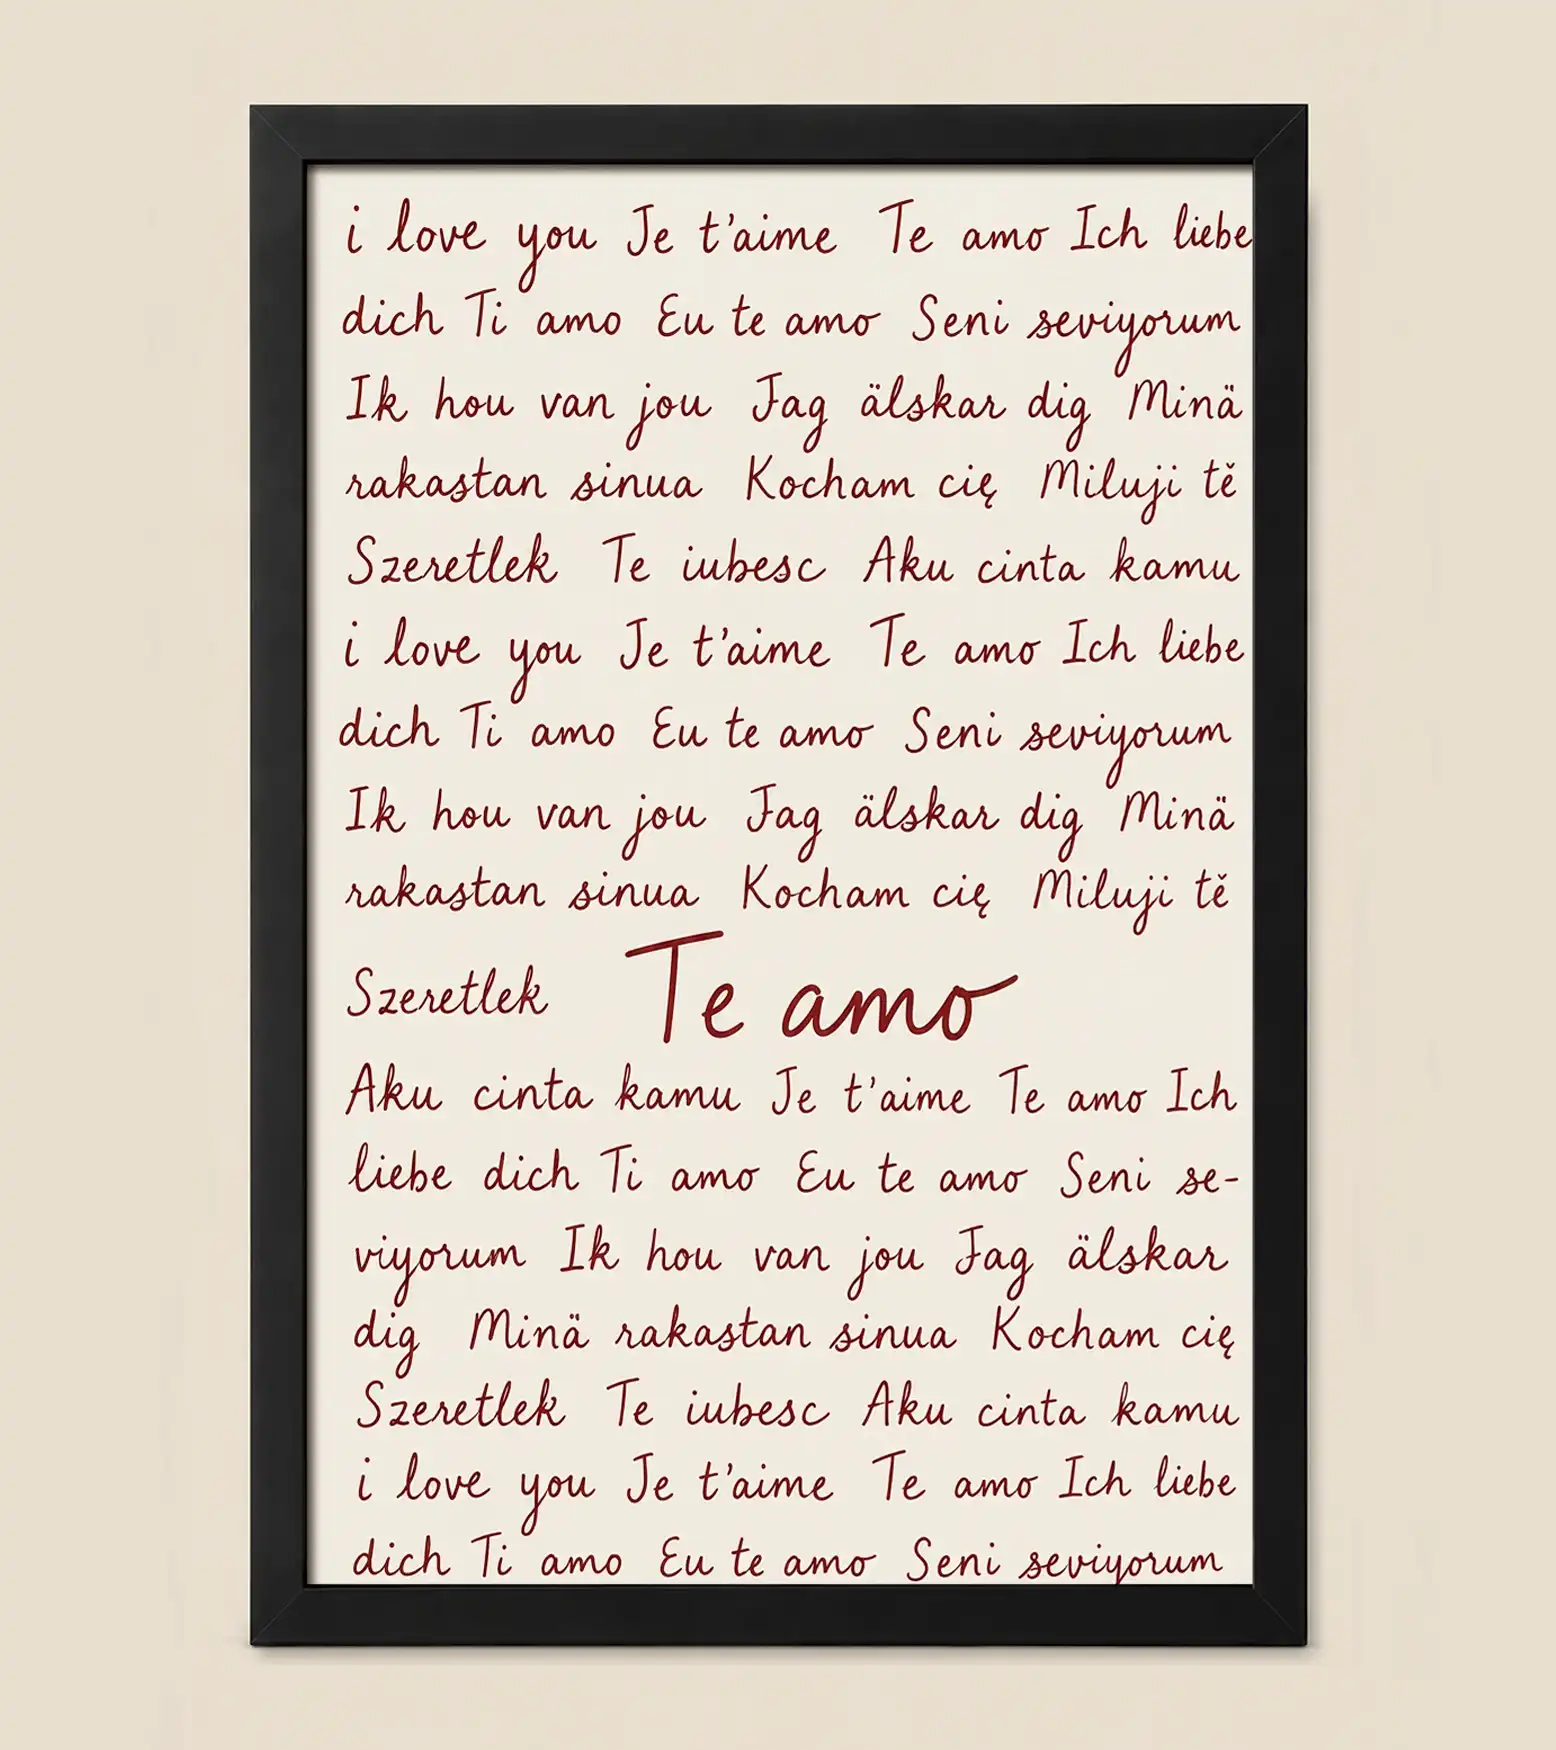 i love you Je t'aime Te amo Ich liebe
dich Ti amo Eu te amo Seni seviyorum
Ik hou van jou Jag älskar dig Minä
rakastan sinua Kocham cię Miluji tě
Szeretlek Te iubesc Aku cinta kamu
i love you Je t'aime Te amo Ich liebe
dich Ti amo Eu te amo Seni seviyorum
Ik hou van jou Jag älskar dig Minä
rakastan sinua Kocham cię Miluji tě
Szeretlek Te amo
Aku cinta kamu Je t'aime Te amo Ich
liebe dich Ti amo Eu te amo Seni se-
viyorum Ik hou van jou Jag älskar
dig Minä rakastan sinua Kocham cię
Szeretlek Te iubesc Aku cinta kamu
i love you Je t'aime Te amo Ich liebe
dich Ti amo Eu te amo Seni seviyorum